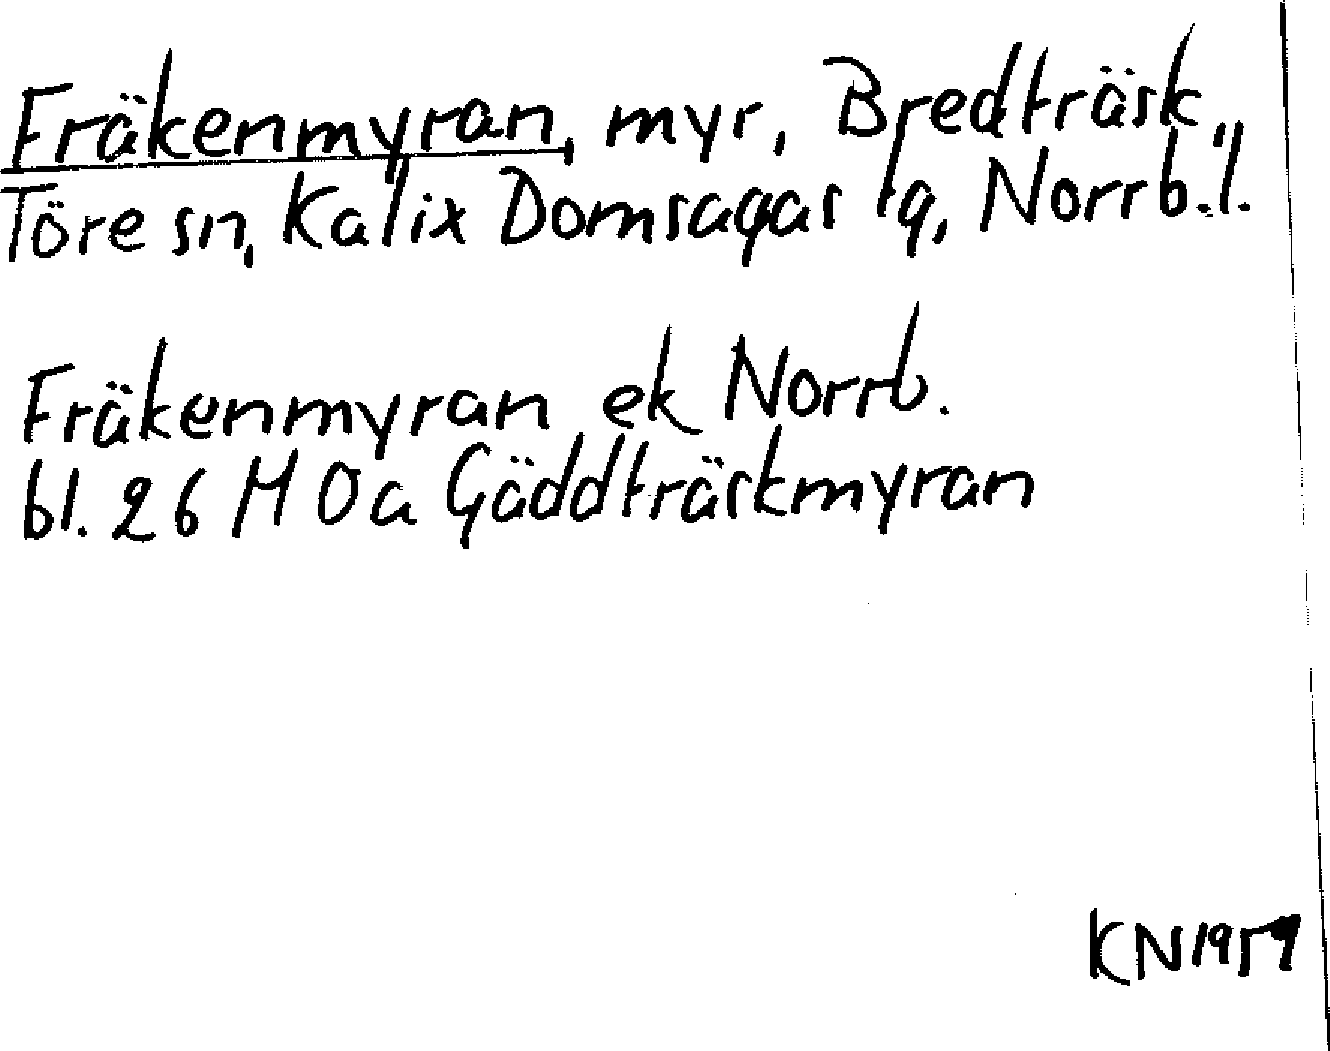 Fräkenmyran, myr, Bredträsk,
Töre sn, Kalix Domsagas tg, Norrb.l.
Fräkenmyran ek Norrb.
bl. 26 H Oa Gäddträskmyran
KN 1959